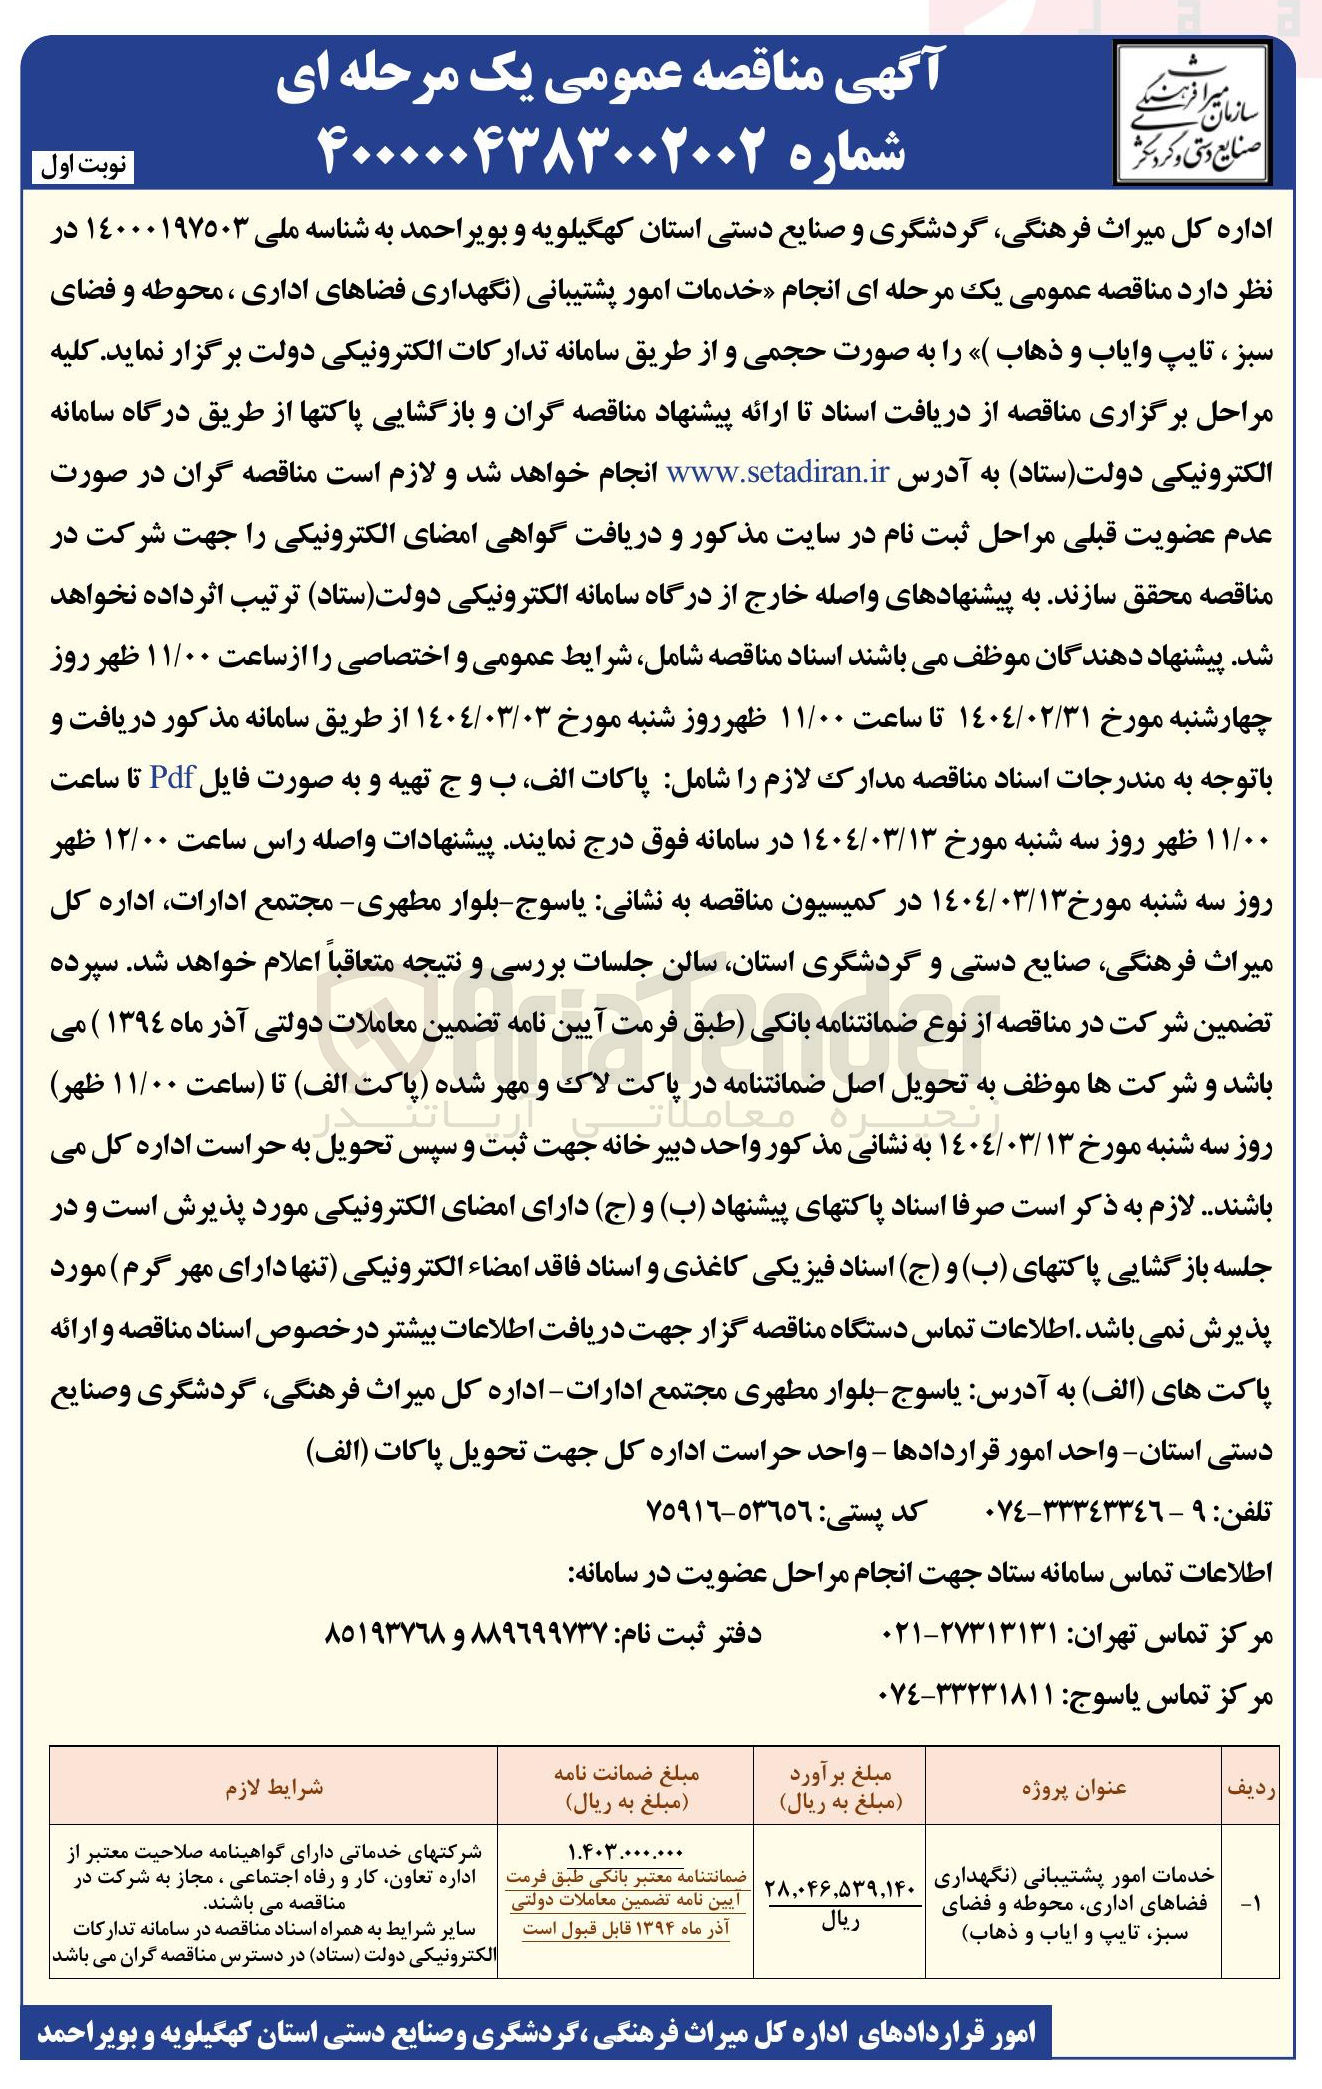 سازمان میراث فرهنگی
صنایع دستی و گردشگری
آگهی مناقصه عمومی یک مرحله ای
شماره ۴۰۰۰۰۰۴۳۸۳۰۰۲۰۰۲
نوبت اول
اداره کل میراث فرهنگی، گردشگری و صنایع دستی استان کهگیلویه و بویراحمد به شناسه ملی ۱۴۰۰۰۱۹۷۵۰۳ در
نظر دارد مناقصه عمومی یک مرحله ای انجام «خدمات امور پشتیبانی (نگهداری فضاهای اداری ، محوطه و فضای
سبز ، تایپ وایاب و ذهاب )» را به صورت حجمی و از طریق سامانه تدارکات الکترونیکی دولت برگزار نماید.کلیه
مراحل برگزاری مناقصه از دریافت اسناد تا ارائه پیشنهاد مناقصه گران و بازگشایی پاکتها از طریق درگاه سامانه
الکترونیکی دولت(ستاد) به آدرس www.setadiran.ir انجام خواهد شد و لازم است مناقصه گران در صورت
عدم عضویت قبلی مراحل ثبت نام در سایت مذکور و دریافت گواهی امضای الکترونیکی را جهت شرکت در
مناقصه محقق سازند. به پیشنهادهای واصله خارج از درگاه سامانه الکترونیکی دولت(ستاد) ترتیب اثرداده نخواهد
شد. پیشنهاد دهندگان موظف می باشند اسناد مناقصه شامل، شرایط عمومی و اختصاصی را ازساعت ۱۱/۰۰ ظهر روز
چهارشنبه مورخ ۱۴۰۴/۰۲/۳۱ تا ساعت ۱۱/۰۰ ظهرروز شنبه مورخ ۱۴۰۴/۰۳/۰۳ از طریق سامانه مذکور دریافت و
باتوجه به مندرجات اسناد مناقصه مدارک لازم را شامل: پاکات الف، ب و ج تهیه و به صورت فایل Pdf تا ساعت
۱۱/۰۰ ظهر روز سه شنبه مورخ ۱۴۰۴/۰۳/۱۳ در سامانه فوق درج نمایند. پیشنهادات واصله راس ساعت ۱۲/۰۰ ظهر
روز سه شنبه مورخ۱۴۰۴/۰۳/۱۳ در کمیسیون مناقصه به نشانی: یاسوج-بلوار مطهری- مجتمع ادارات، اداره کل
میراث فرهنگی، صنایع دستی و گردشگری استان، سالن جلسات بررسی و نتیجه متعاقباً اعلام خواهد شد. سپرده
تضمین شرکت در مناقصه از نوع ضمانتنامه بانکی (طبق فرمت آیین نامه تضمین معاملات دولتی آذر ماه ۱۳۹۴ ) می
باشد و شرکت ها موظف به تحویل اصل ضمانتنامه در پاکت لاک و مهر شده (پاکت الف) تا (ساعت ۱۱/۰۰ ظهر)
روز سه شنبه مورخ ۱۴۰۴/۰۳/۱۳ به نشانی مذکور واحد دبیرخانه جهت ثبت و سپس تحویل به حراست اداره کل می
باشند.. لازم به ذکر است صرفا اسناد پاکتهای پیشنهاد (ب) و (ج) دارای امضای الکترونیکی مورد پذیرش است و در
جلسه بازگشایی پاکتهای (ب) و (ج) اسناد فیزیکی کاغذی و اسناد فاقد امضاء الکترونیکی (تنها دارای مهر گرم ) مورد
پذیرش نمی باشد .اطلاعات تماس دستگاه مناقصه گزار جهت دریافت اطلاعات بیشتر درخصوص اسناد مناقصه و ارائه
پاکت های (الف) به آدرس: یاسوج-بلوار مطهری مجتمع ادارات- اداره کل میراث فرهنگی، گردشگری وصنایع
دستی استان- واحد امور قراردادها - واحد حراست اداره کل جهت تحویل پاکات (الف)
تلفن: ۹ - ۳۳۳۴۳۳۴۶-۰۷۴ کد پستی: ۵۳۶۵۶-۷۵۹۱۶
اطلاعات تماس سامانه ستاد جهت انجام مراحل عضویت در سامانه:
مرکز تماس تهران: ۲۷۳۱۳۱۳۱-۰۲۱ دفتر ثبت نام: ۸۸۹۶۹۹۷۳۷ و ۸۵۱۹۳۷۶۸
مرکز تماس یاسوج: ۳۳۲۳۱۸۱۱-۰۷۴
AriaTender
زنجیره معاملاتی آریاتندر
ردیف
عنوان پروژه
مبلغ برآورد
(مبلغ به ریال)
مبلغ ضمانت نامه
(مبلغ به ریال)
شرایط لازم
۱-
خدمات امور پشتیبانی (نگهداری
فضاهای اداری، محوطه و فضای
سبز، تایپ و ایاب و ذهاب)
۲۸,۰۴۶,۵۳۹,۱۴۰
ریال
۱.۴۰۳.۰۰۰.۰۰۰
ضمانتنامه معتبر بانکی طبق فرمت
آیین نامه تضمین معاملات دولتی
آذر ماه ۱۳۹۴ قابل قبول است
شرکتهای خدماتی دارای گواهینامه صلاحیت معتبر از
اداره تعاون، کار و رفاه اجتماعی ، مجاز به شرکت در
مناقصه می باشند.
سایر شرایط به همراه اسناد مناقصه در سامانه تدارکات
الکترونیکی دولت (ستاد) در دسترس مناقصه گران می باشد
امور قراردادهای اداره کل میراث فرهنگی ،گردشگری وصنایع دستی استان کهگیلویه و بویراحمد